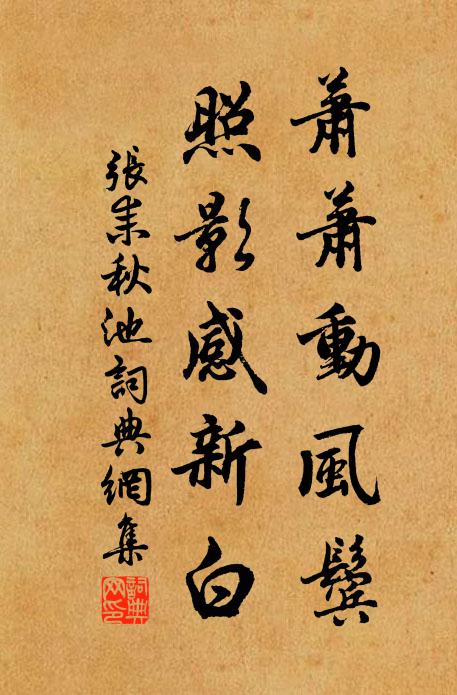 蕭蕭動風鬢
照影感新白
張耒秋池詞典網集
詞典
網印